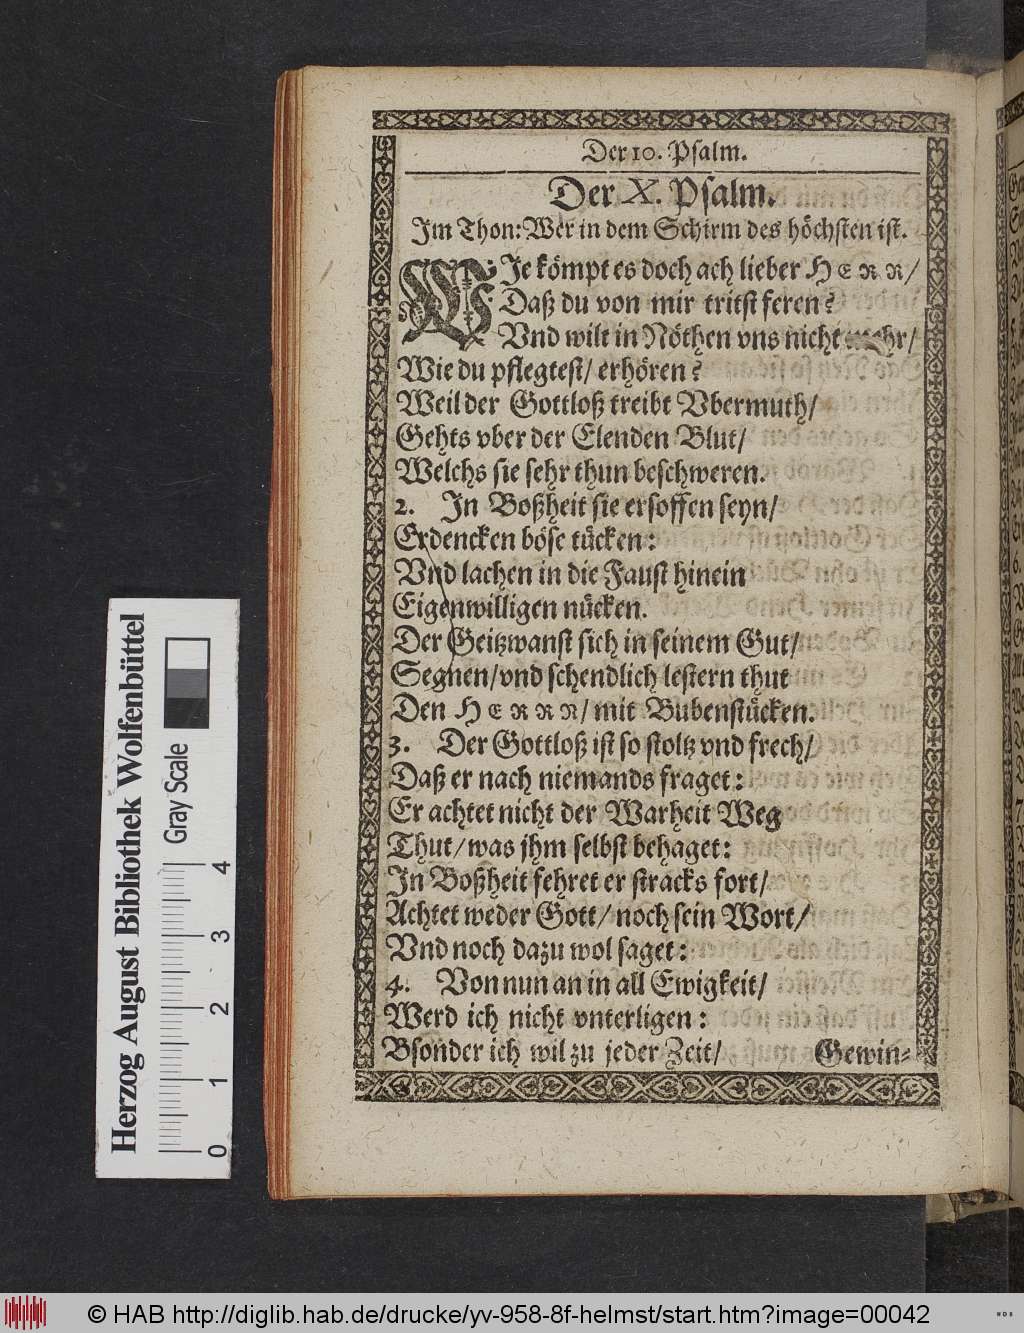 Der 10. Psalm.
Der X. Psalm.
Im Thon: Wer in dem Schirm des höchsten ist.
WJe kömpt es doch ach lieber HERR/
Daß du von mir tritst feren?
Vnd wilt in Nöthen vns nicht mehr/
Wie du pflegtest/ erhören?
Weil der Gottloß treibt Vbermuth/
Gehts vber der Elenden Blut/
Welchs sie sehr thun beschweren.
2. In Boßheit sie ersoffen seyn/
Erdencken böse tücken:
Vnd lachen in die Faust hinein
Eigenwilligen nücken.
Der Geitzwanst sich in seinem Gut/
Segnen/ vnd schendlich lestern thut
Den HERRN/ mit Bubenstücken.
3. Der Gottloß ist so stoltz vnd frech/
Daß er nach niemands fraget:
Er achtet nicht der Warheit Weg
Thut/ was jhm selbst behaget:
In Boßheit fehret er stracks fort/
Achtet weder Gott/ noch sein Wort/
Vnd noch dazu wol saget:
4. Von nun an in all Ewigkeit/
Werd ich nicht vnterligen:
Bsonder ich wil zu jeder Zeit/
Gewin-
Herzog August Bibliothek Wolfenbüttel
Gray Scale
0 1 2 3 4
© HAB http://diglib.hab.de/drucke/yv-958-8f-helmst/start.htm?image=00042